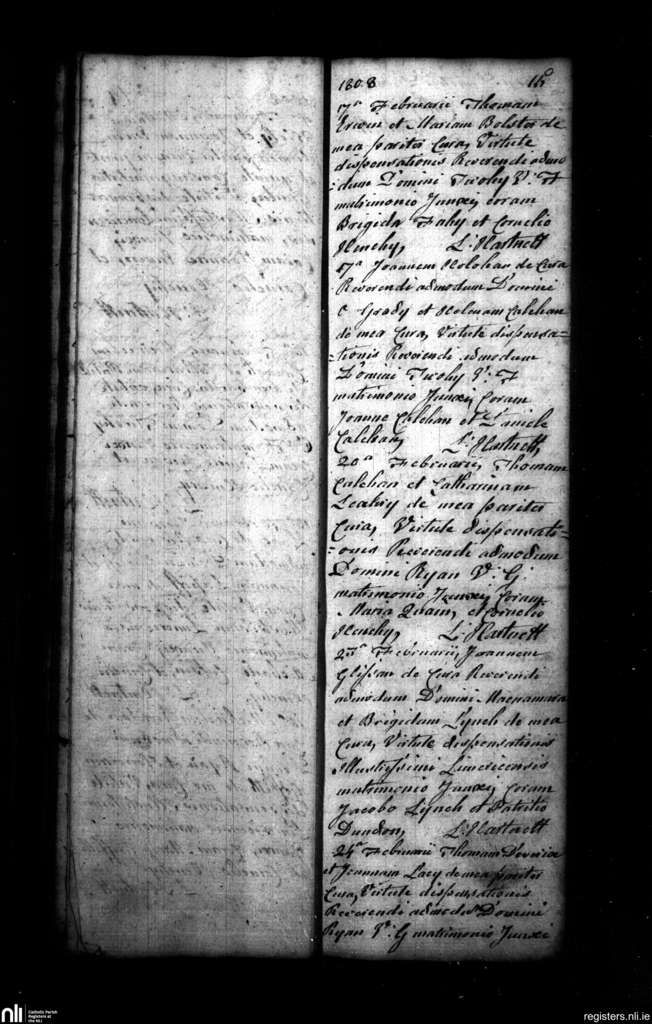 1808
7ª Februarii Thomam
Erwin et Mariam Bolster de
mea pariter Cura, Virtute
dispensationis Reverendi admo
dum Domini Twohy V: F
matrimonio Junxi, coram
Brigida Fahy et Cornelio
Henehy, L: Hartnett
17ª Joannem Holohan de Cura
Reverendi admodum Domini
O Grady et Helenam Calehan
de mea Cura, Virtute dispensa=
=tionis Reverendi admodum
Domini Twohy V: F
matrimonio Junxi, Coram
Joanne Calehan et Daniele
Calehan, L: Hartnett
20ª Februarii, Thomam
Calehan et Catharinam
Leahy de mea pariter
Cura, Virtute dispensati=
=onis Reverendi admodum
Domini Ryan V: G
matrimonio Junxi, Coram
Maria Quain, et Cornelio
Henehy, L: Hartnett
Februarii, Joannem
Glissan de Cura Reverendi
admodum Domini Macnamara
et Brigidam Lynch de mea
Cura, Virtute dispensationis
Illustrissimi Limericensis
matrimonio Junxi, Coram
Jacobo Lynch et Patritio
Dundon, L: Hartnett
24ª Februarii Thomam
et Joannam Lacy de mea pariter
Cura, Virtute dispensationis
Reverendi admodum Domini
Ryan V: G matrimonio Junxi
nli Catholic Parish
Registers at
the NLI
registers.nli.ie